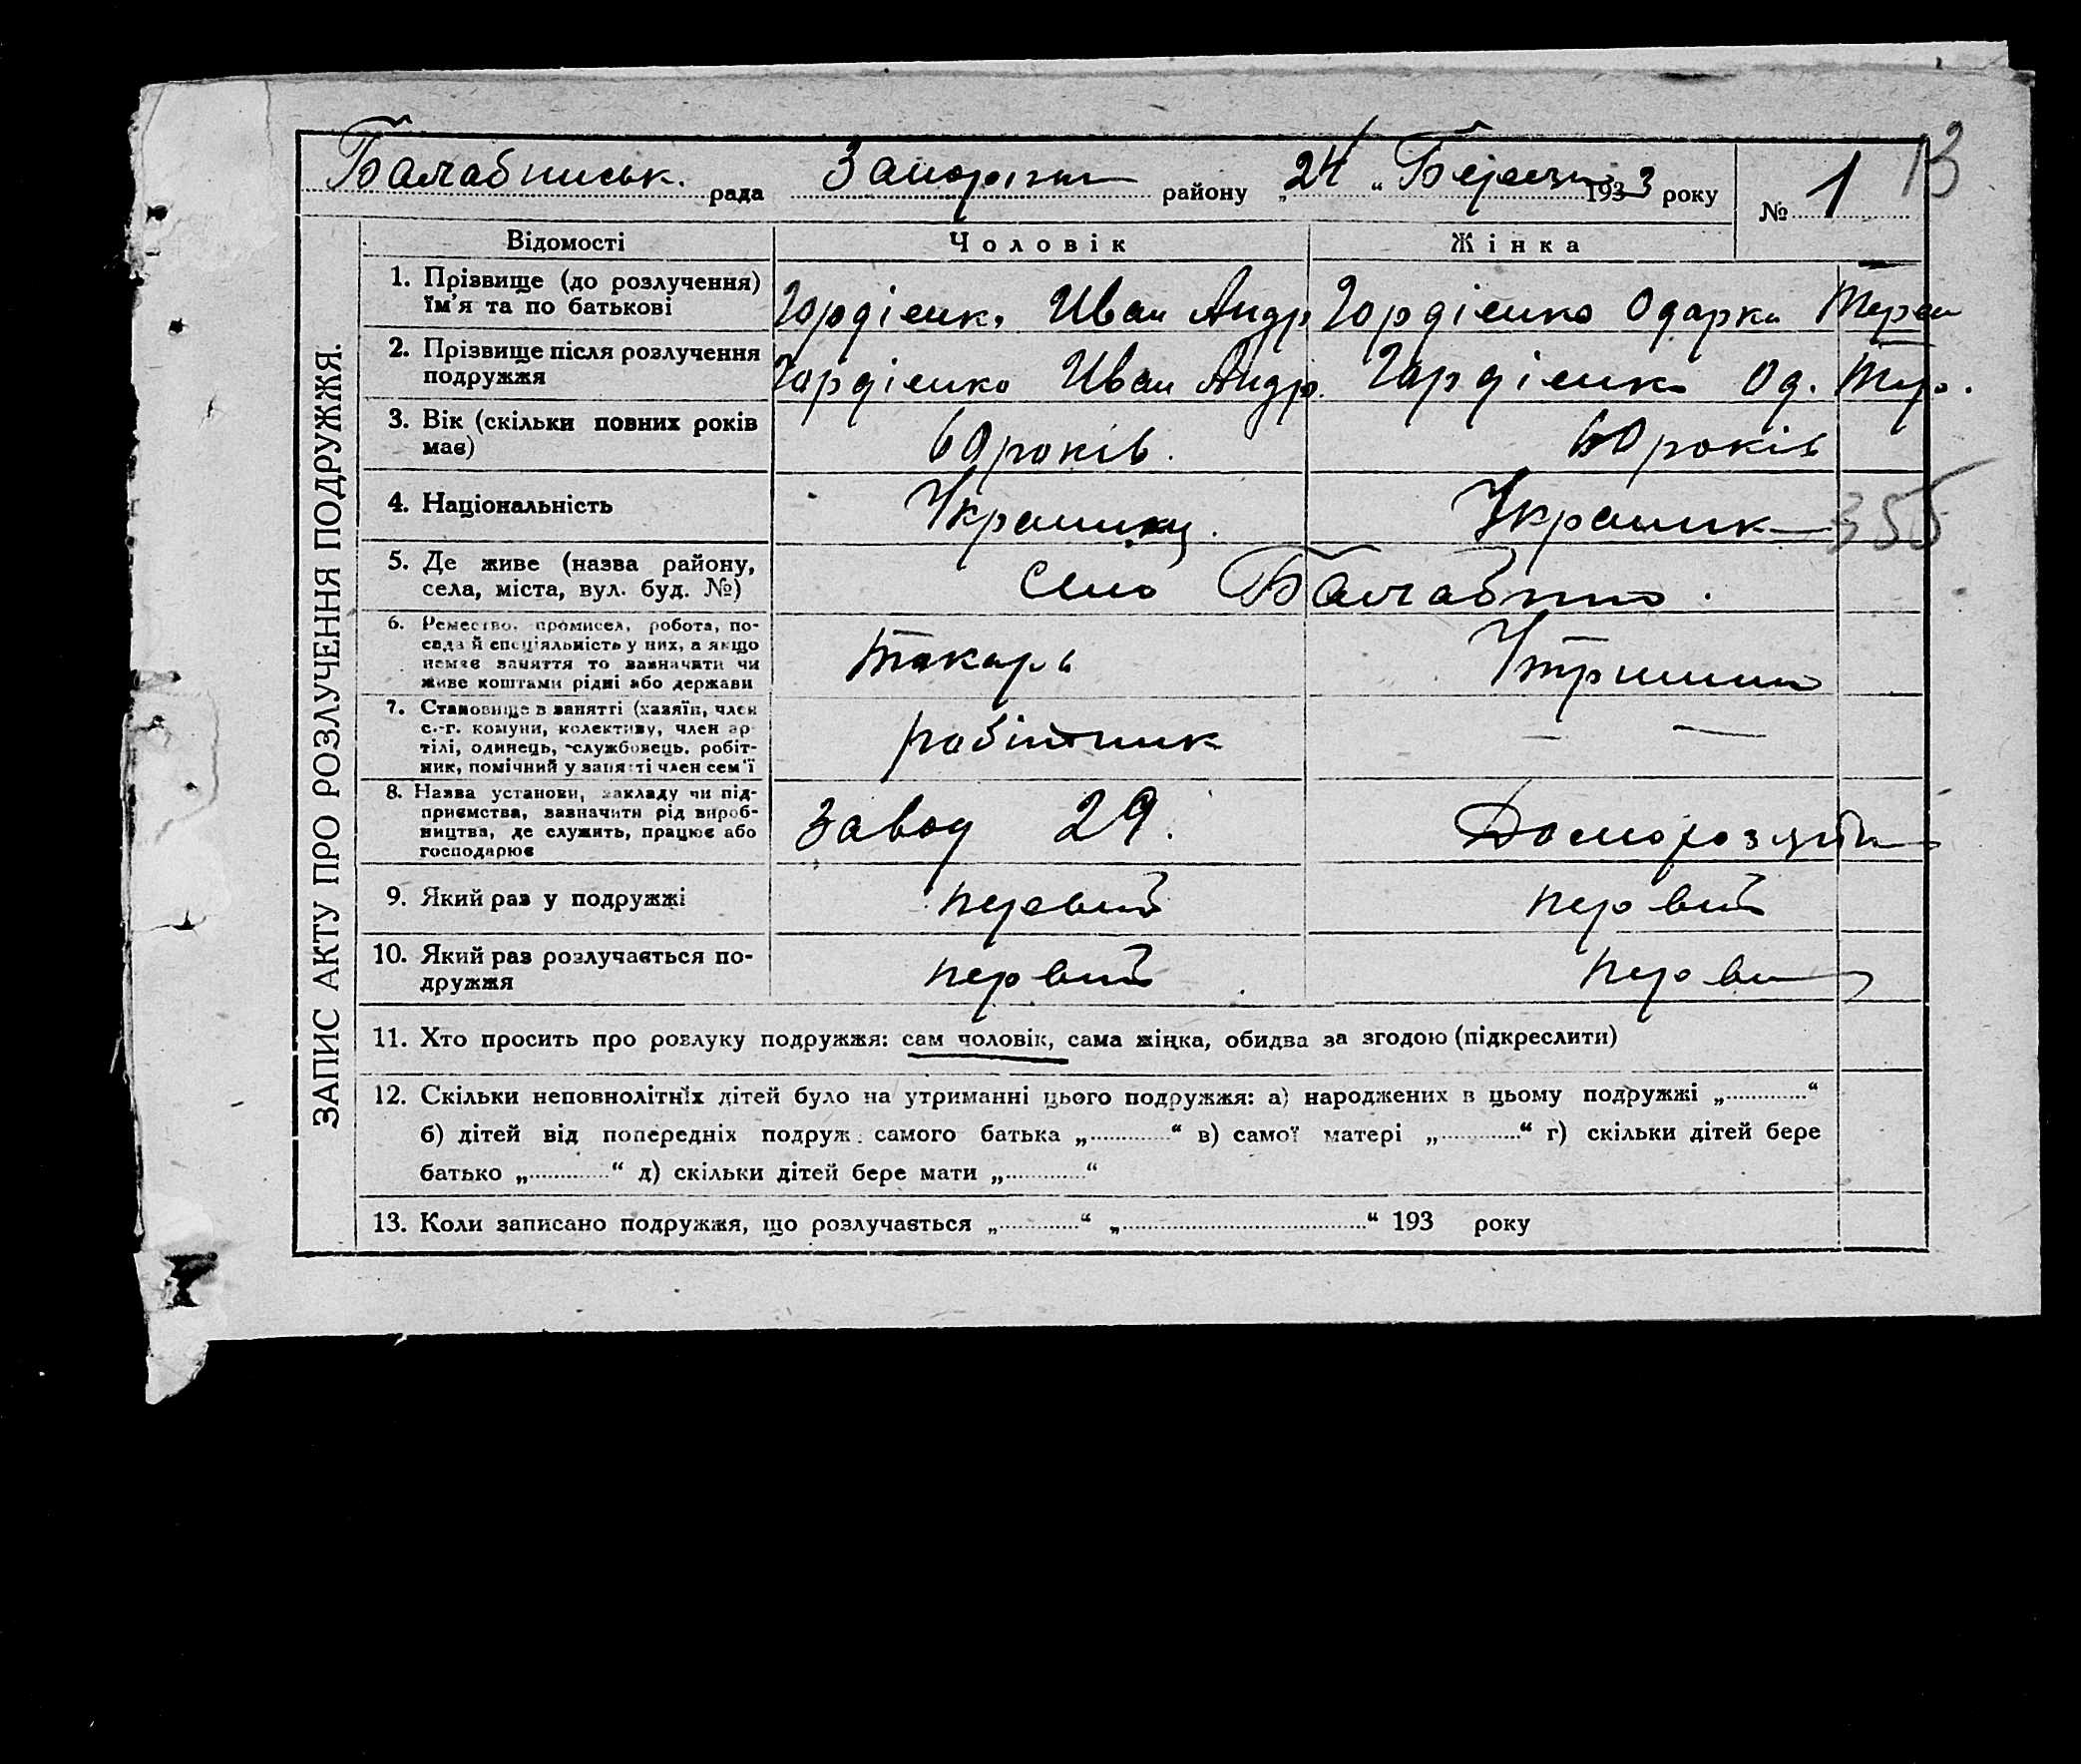 13
Балабинськ. рада Запорізьк району „24“ Березня 1933 року № 1
ЗАПИС АКТУ ПРО РОЗЛУЧЕННЯ ПОДРУЖЖЯ.
Відомості Чоловік Жінка
1. Прізвище (до розлучення)
ім'я та по батькові
Гордіенко Иван Андр Гордіенко Одарка Терен
2. Прізвище після розлучення
подружжя
Гордіенко Иван Андр. Гордіенко Од. Тер.
3. Вік (скільки повних років
має)
60 років. 60 років
4. Національність
Украинец. Украинк 355
5. Де живе (назва району,
села, міста, вул. буд. №)
Село Балабино.
6. Ремество, промисел, робота, по-
сада й спеціяльність у них, а якщо
немає заняття то зазначити чи
живе коштами рідні або держави
токарь
7. Становище в занятті (хазяїн, член
с.-г. комуни, колективу, член ар-
тілі, одинець, службовець, робіт-
ник, помічний у занятті член сем'ї
робітник — —
8. Назва установи, закладу чи під-
приємства, зазначити рід вироб-
ництва, де служить, працює або
господарює
Завод 29.
9. Який раз у подружжі
первий первий
10. Який раз розлучається по-
дружжя
первий перви
11. Хто просить про розлуку подружжя: сам чоловік, сама жінка, обидва за згодою (підкреслити)
12. Скільки неповнолітніх дітей було на утриманні цього подружжя: а) народжених в цьому подружжі „............“
б) дітей від попередніх подруж. самого батька „............“ в) самої матері „............“ г) скільки дітей бере
батько „............“ д) скільки дітей бере мати „............“
13. Коли записано подружжя, що розлучається „............“ „....................................“ 193 року